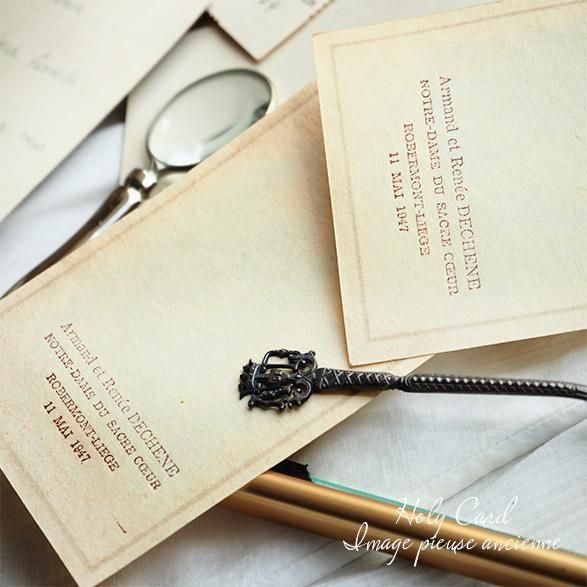 Armand et Renée DECHENE
NOTRE-DAME DU SACRE CŒUR
ROBERMONT-LIEGE
11 MAI 1947
Armand et Renée DECHENE
NOTRE-DAME DU SACRE CŒUR
ROBERMONT-LIEGE
11 MAI 1947
Holy Card
Image pieuse ancienne